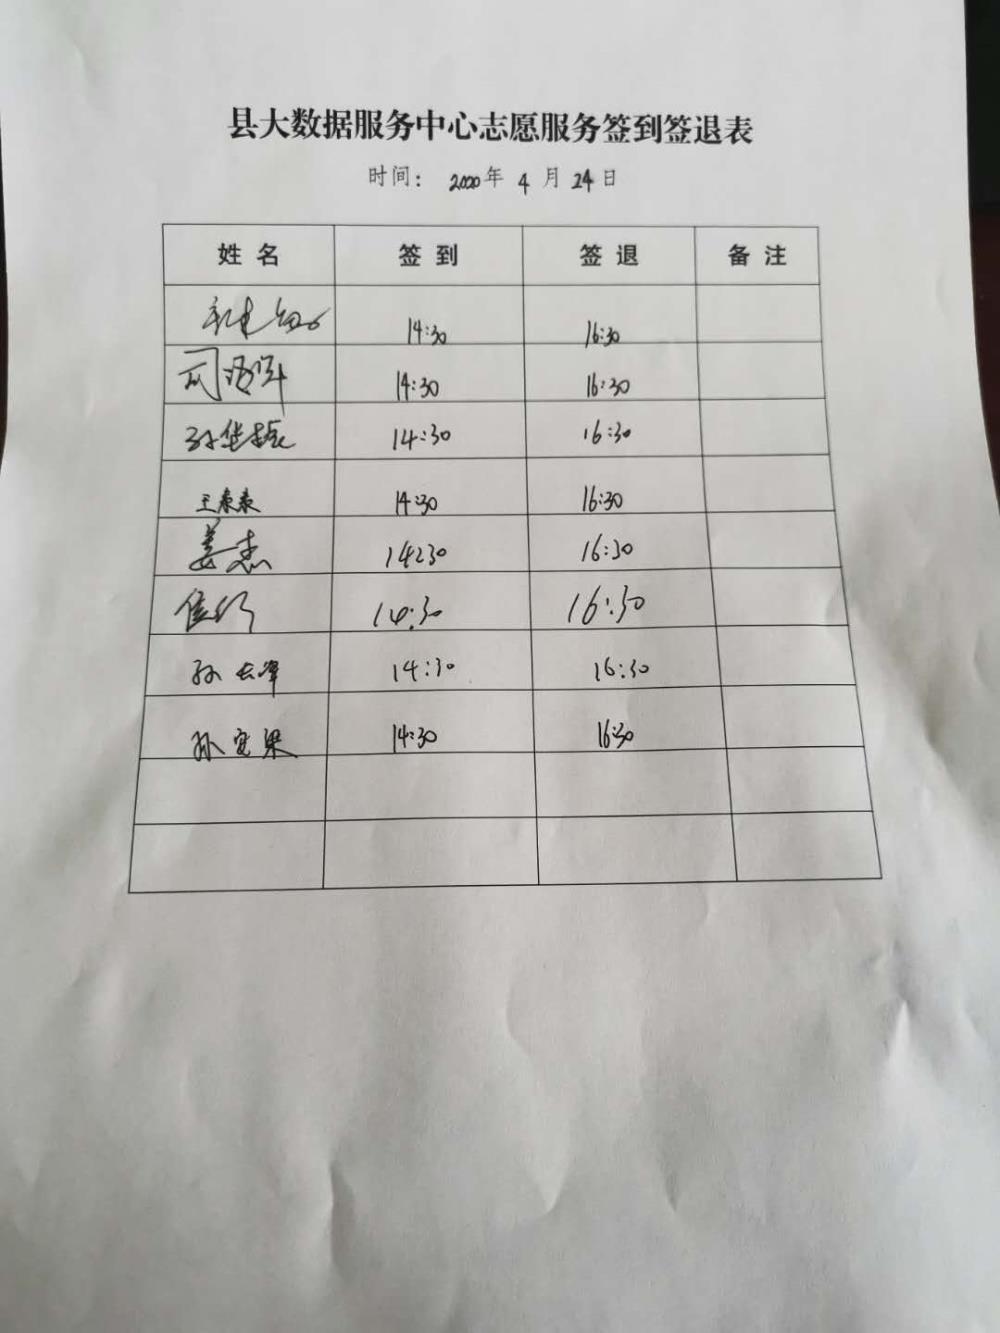 县大数据服务中心志愿服务签到签退表
时间： 2020年 4 月 24日
姓 名 签 到 签 退 备 注
14:30 16:30
司 14:30 16:30
孙华振 14:30 16:30
王森森 14:30 16:30
姜志 14:30 16:30
14:30 16:30
孙长峰 14:30 16:30
孙宪梁 14:30 16:30